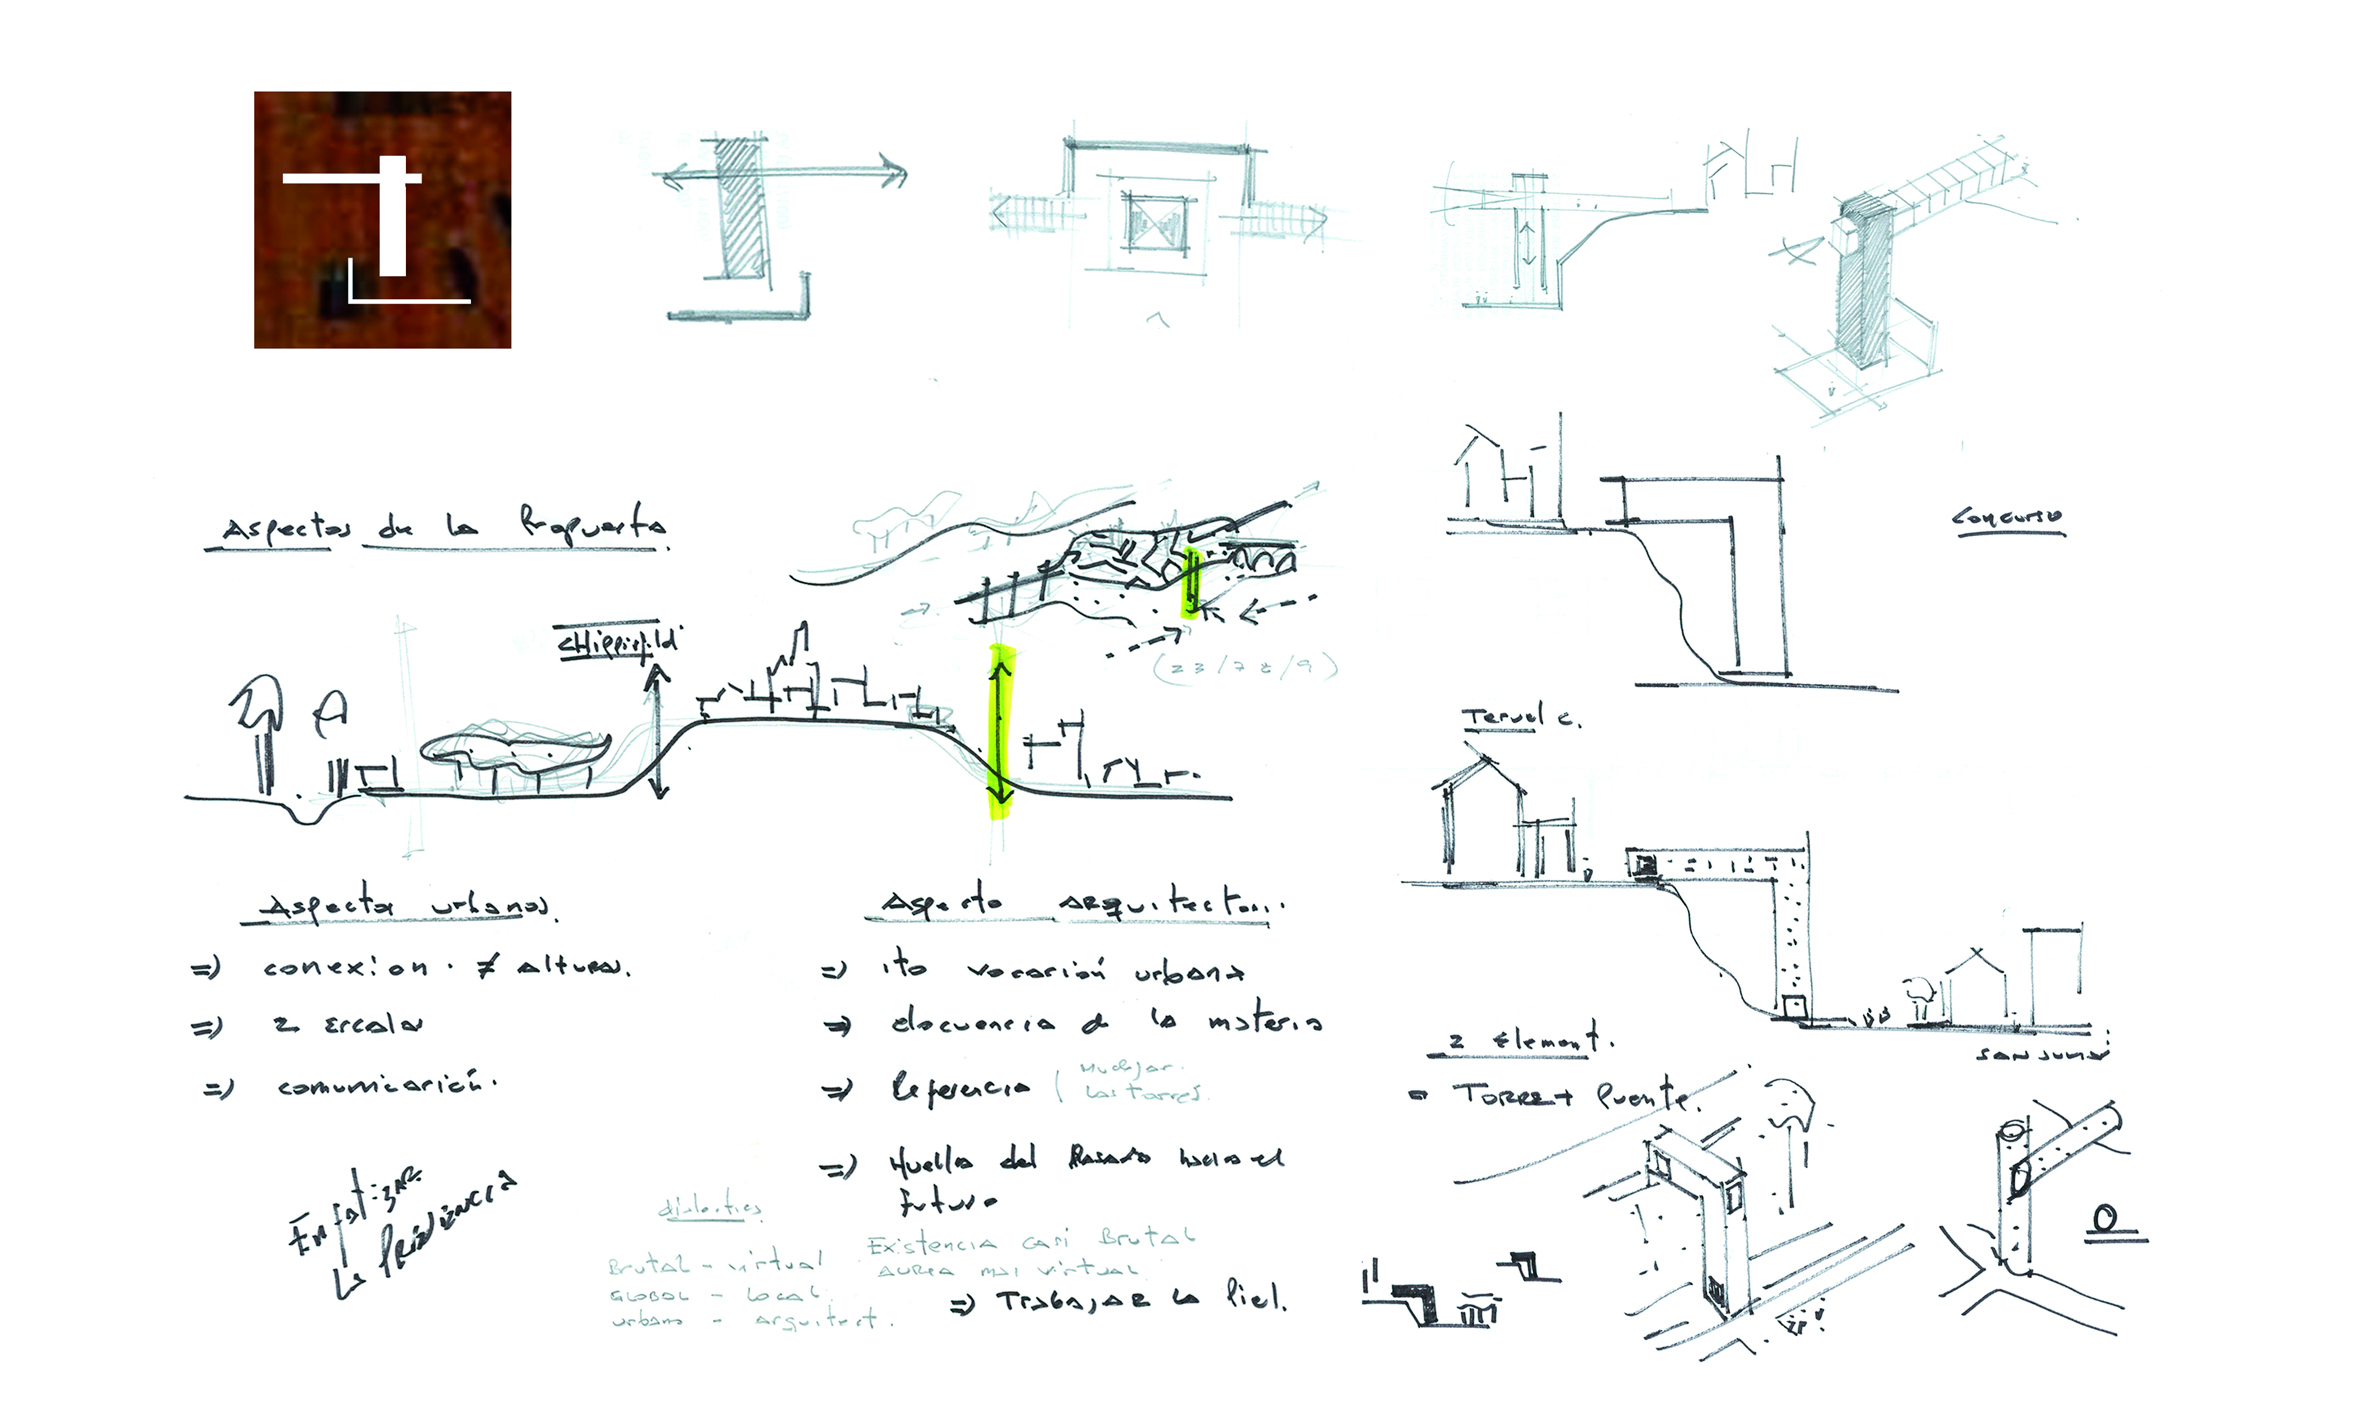 Aspectos de la Propuesta
CHipperfield
(23/7 /9)
Concurso
Teruel c.
Aspectos urbanos.
=> conexion. ≠ alturas.
=> 2 Escalas
=> comunicación.
Enfatizar
La
Aspecto ARquitecton..
=> ito vocación urbana
=> elocuencia d la materia
=> Referencia ( Mudejar.
Las torres.
=> Huella del Pasado hacia el
futuro
dialectica
Existencia casi Brutal
virtual
Brutal - virtual
GLOBAL - Local
urbano - arquitect.
=> Trabajar la Piel.
2 Element.
= TORRE + Puente.
SAN JULIAN